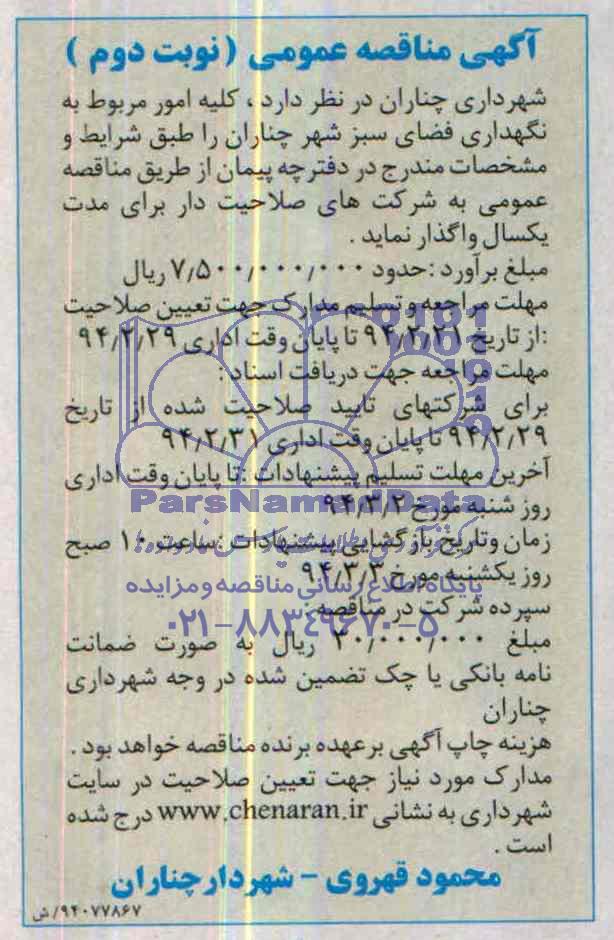 آگهی مناقصه عمومی (نوبت دوم )
شهرداری چناران در نظر دارد ، کلیه امور مربوط به
نگهداری فضای سبز شهر چناران را طبق شرایط و
مشخصات مندرج در دفترچه پیمان از طریق مناقصه
عمومی به شرکت های صلاحیت دار برای مدت
یکسال واگذار نماید .
مبلغ برآورد :حدود ۷٫۵۰۰٫۰۰۰٫۰۰۰ ریال
مهلت مراجعه و تسلیم مدارک جهت تعیین صلاحیت
:از تاریخ ۹۴٫۲٫۲۱ تا پایان وقت اداری ۹۴٫۲٫۲۹
مهلت مراجعه جهت دریافت اسناد :
برای شرکتهای تایید صلاحیت شده از تاریخ
۹۴٫۲٫۲۹ تا پایان وقت اداری ۹۴٫۲٫۳۱
آخرین مهلت تسلیم پیشنهادات :تا پایان وقت اداری
روز شنبه مورخ ۹۴٫۳٫۲
ParsNamadData
زمان وتاریخ بازگشایی پیشنهادات :ساعت ۱۰ صبح
روز یکشنبه مورخ ۹۴٫۳٫۳
پایگاه اطلاع رسانی مناقصه و مزایده
سپرده شرکت در مناقصه :
۰۲۱-۸۸۳۴۹۶۷۰-۵
مبلغ ۳۰٫۰۰۰٫۰۰۰ ریال به صورت ضمانت
نامه بانکی یا چک تضمین شده در وجه شهرداری
چناران
هزینه چاپ آگهی برعهده برنده مناقصه خواهد بود .
مدارک مورد نیاز جهت تعیین صلاحیت در سایت
شهرداری به نشانی www.chenaran.ir درج شده
است .
محمود قهروی - شهردار چناران
۹۴۰۷۷۸۶۷/ ش